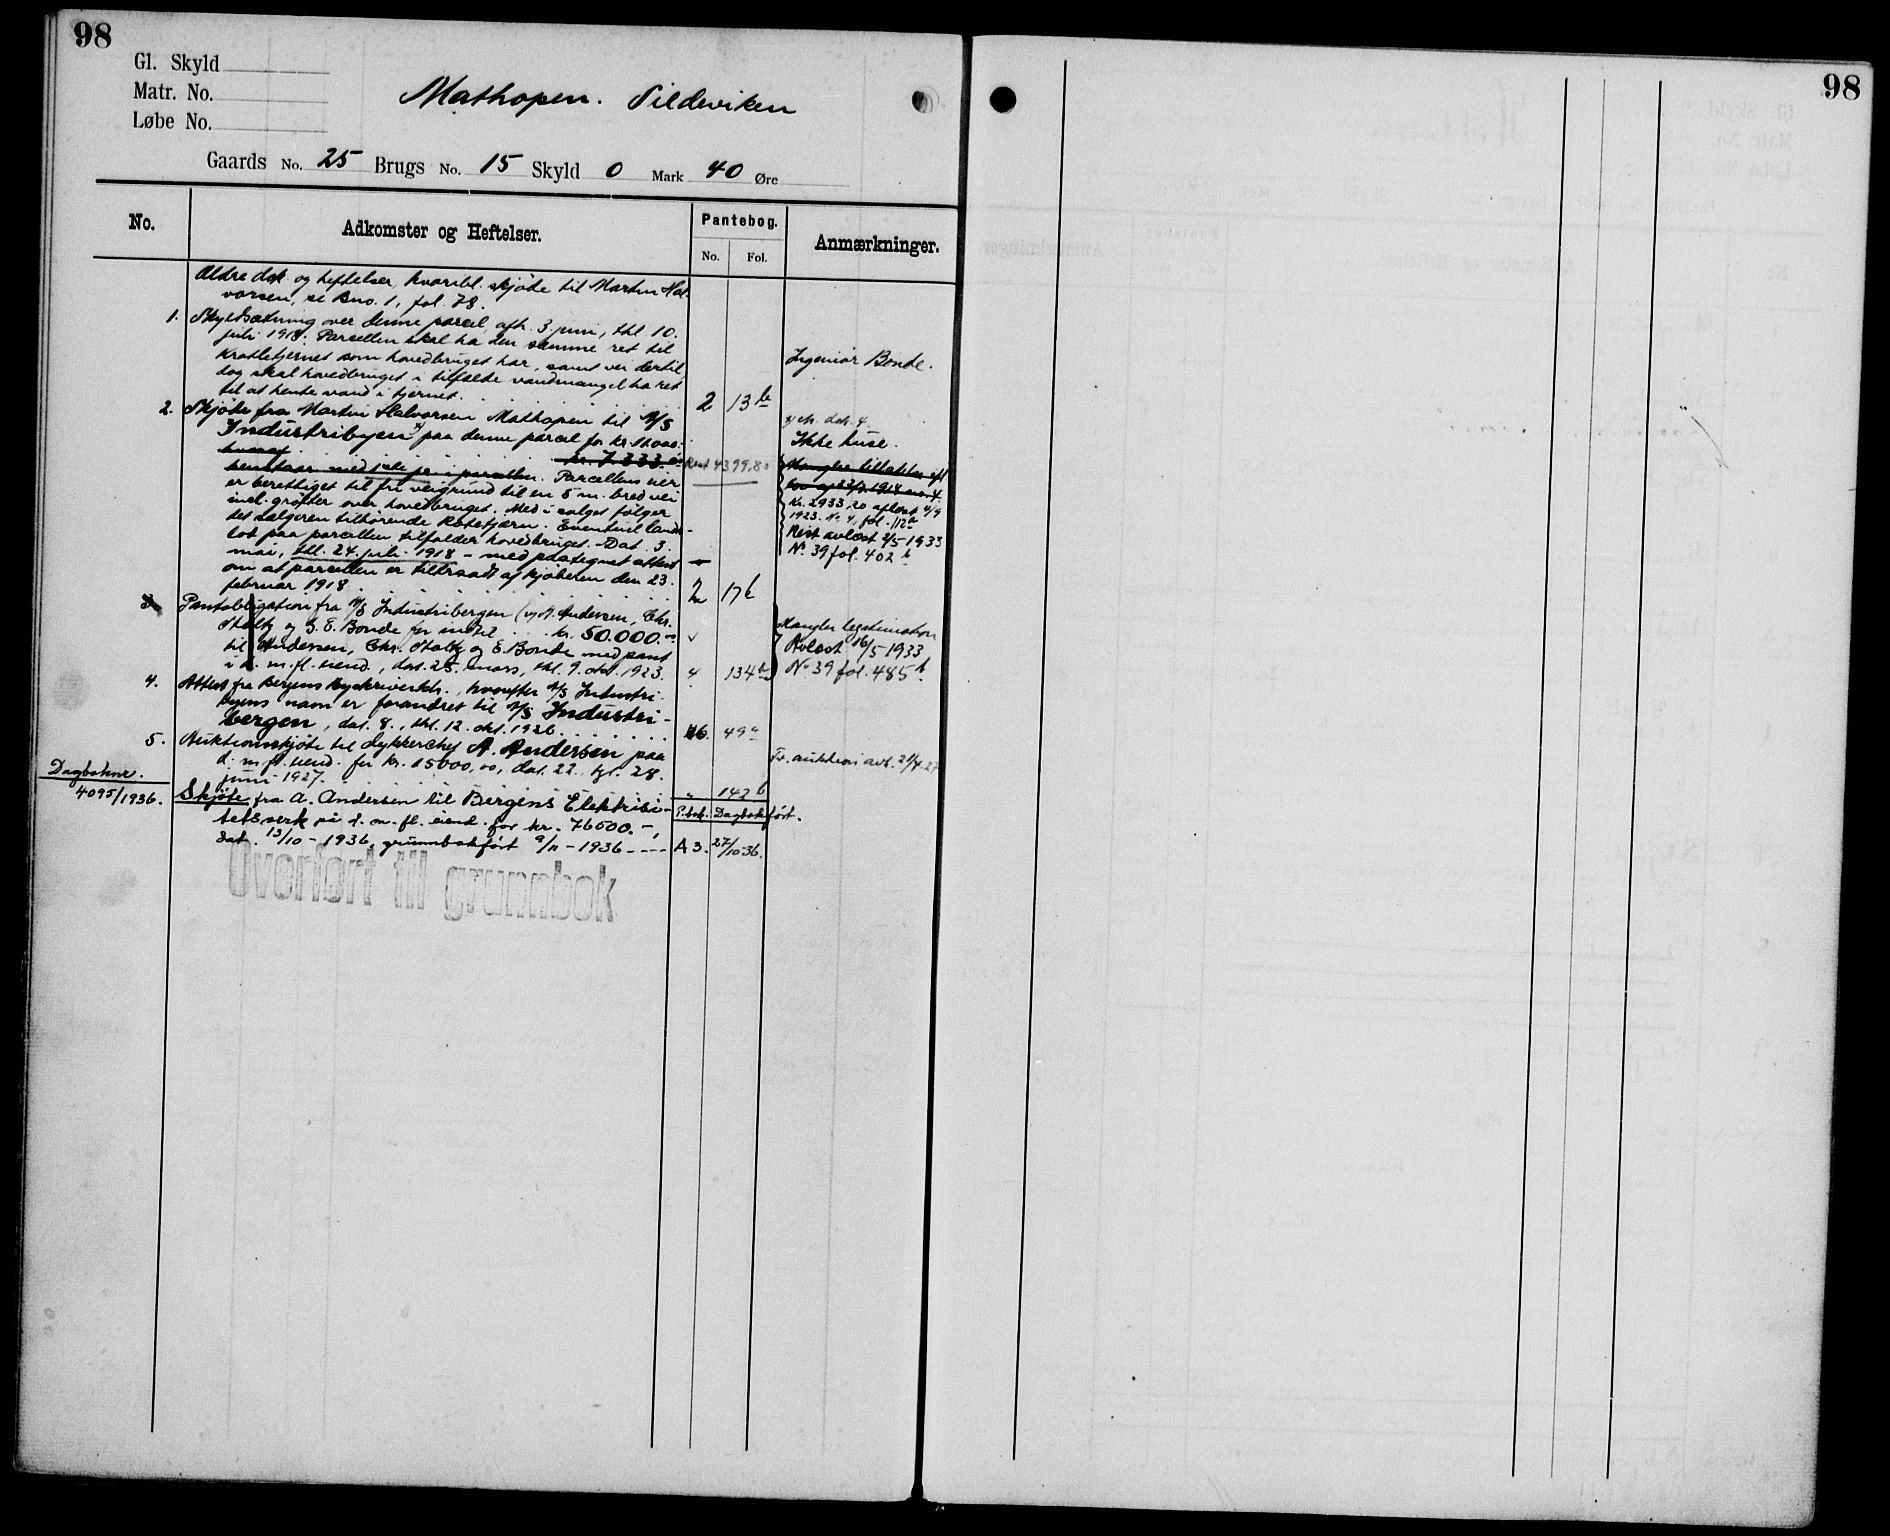 98
98
Gl. Skyld
Matr. No.
Løbe No.
Mathopen. Sildeviken
Gaards No. 25 Brugs No. 15 Skyld 0 Mark 40 Øre
No. Adkomster og Heftelser. Pantebog. Anmærkninger.
No. Fol.
Ældre dok. og heftelser, hvoribl. skjøte til Martin Hal-
vorsen, se Bno. 1, fol. 78.
1. Skyldsætning over denne parcel, afh. 3. juni, thl. 10.
juli 1918. Parcellen skal ha den samme ret til
Kratletjernet som hovedbruget har, samt vei dertil,
dog skal hovedbruget i tilfælde vandmangel ha ret
til at hente vand i tjernet. 2 13 b
Ingeniør Bonde.
2. Skjøte fra Martin Halvorsen Mathopen til A/S
Industribyen x) paa denne parcel for kr. 11000.-
hvoraf kr. 7.333.
henstaar med 1ste pr. i parcellen. Parcellens eier
er berettiget til fri veigrund til en 5 m. bred vei
incl. grøfter over hovedbruget. Med i salget følger
det sælgeren tilhørende Ratetjærn. Eventuel land-
lot paa parcellen tilfalder hovedbruget. Dat. 3.
mai, thl. 24. juli 1918 - med paategnet attest
om at parcellen er tiltraadt af kjøberen den 23.
februar 1918 2 17 b
Rest 4399.80
x) cfr. dok. 4
Ikke huse.
Mangler tilladelse efl.
lov af 1918 no. 4.
Kr. 2933,20 aflæst 4/9
1923. No 4, fol. 112 a
Rest avlæst 2/5-1933
No. 39 fol. 402 b
3. Pantobligation fra A/S Industribergen (v/ A. Andersen, Chr.
Stoltz og G. E. Bonde for indtil kr. 50.000.-
til Andersen, Chr. Stoltz og E. Bonde med pant
i d. m. fl. eiend., dat. 28. mars, thl. 9. okt. 1923. 4 134 b
Mangler legitimation
Avlæst 16/5-1933
No 39 fol. 485 b
4. Attest fra Bergens Byskriverktr., hvorefter A/S Industri-
byens navn er forandret til A/S Industri-
bergen, dat. 8., thl. 12. okt. 1926. 16. 49 a
5. Auktionsskjøte til dykkerchef A. Andersen paa
d. m. fl. eiend. for kr. 15000,00, dat. 22. tgl. 28.
juni 1927. " 142 b
Tv. auktion avh. 21/4.27
Dagboknr.
4095/1936.
P.bok. Dagbokført.
Skjøte fra A. Andersen til Bergens Elektrisi-
tetsverk på d. m. fl. eiend. for kr. 76500.-,
dat. 13/10-1936, grunnbokført 9/11-1936 ---- A 3. 27/10 36.
Overført til grunnbok